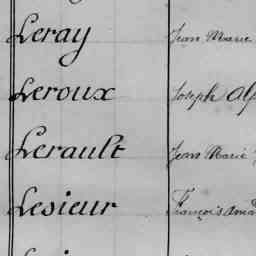 Leray Jean Marie
Leroux Joseph
Lerault Jean Marie
Lesieur François